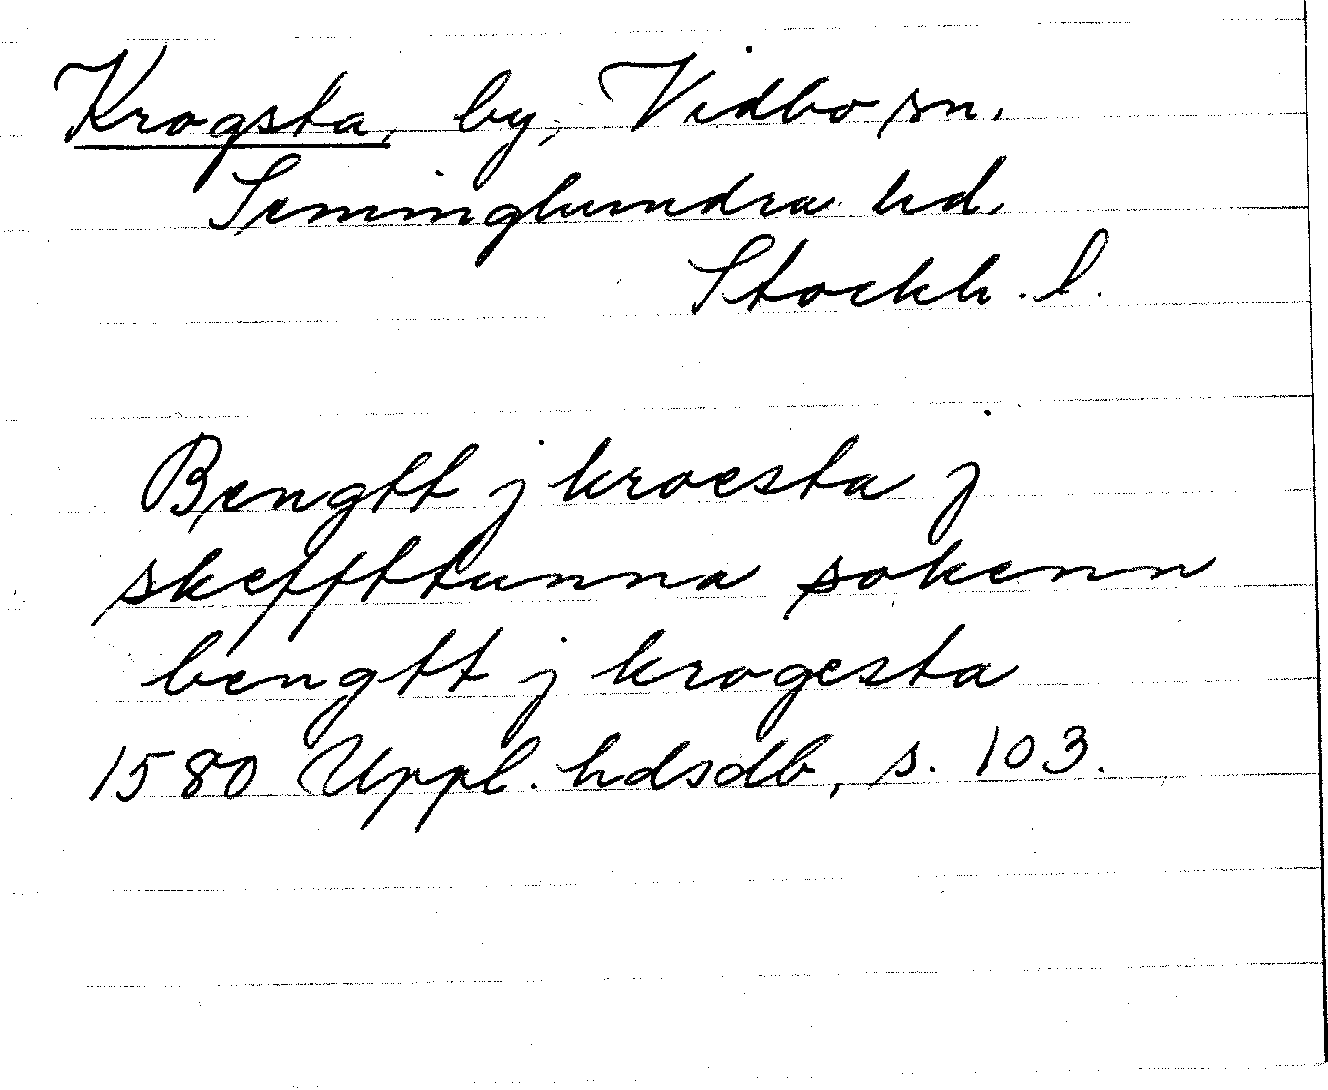 Krogsta, by, Vidbo sn.
Seminghundra hd.
Stockh. l.
Bengtt j kroesta j
skeffttunna sokenn
bengtt j krogesta
1580 Uppl. hdsdb, s. 103.